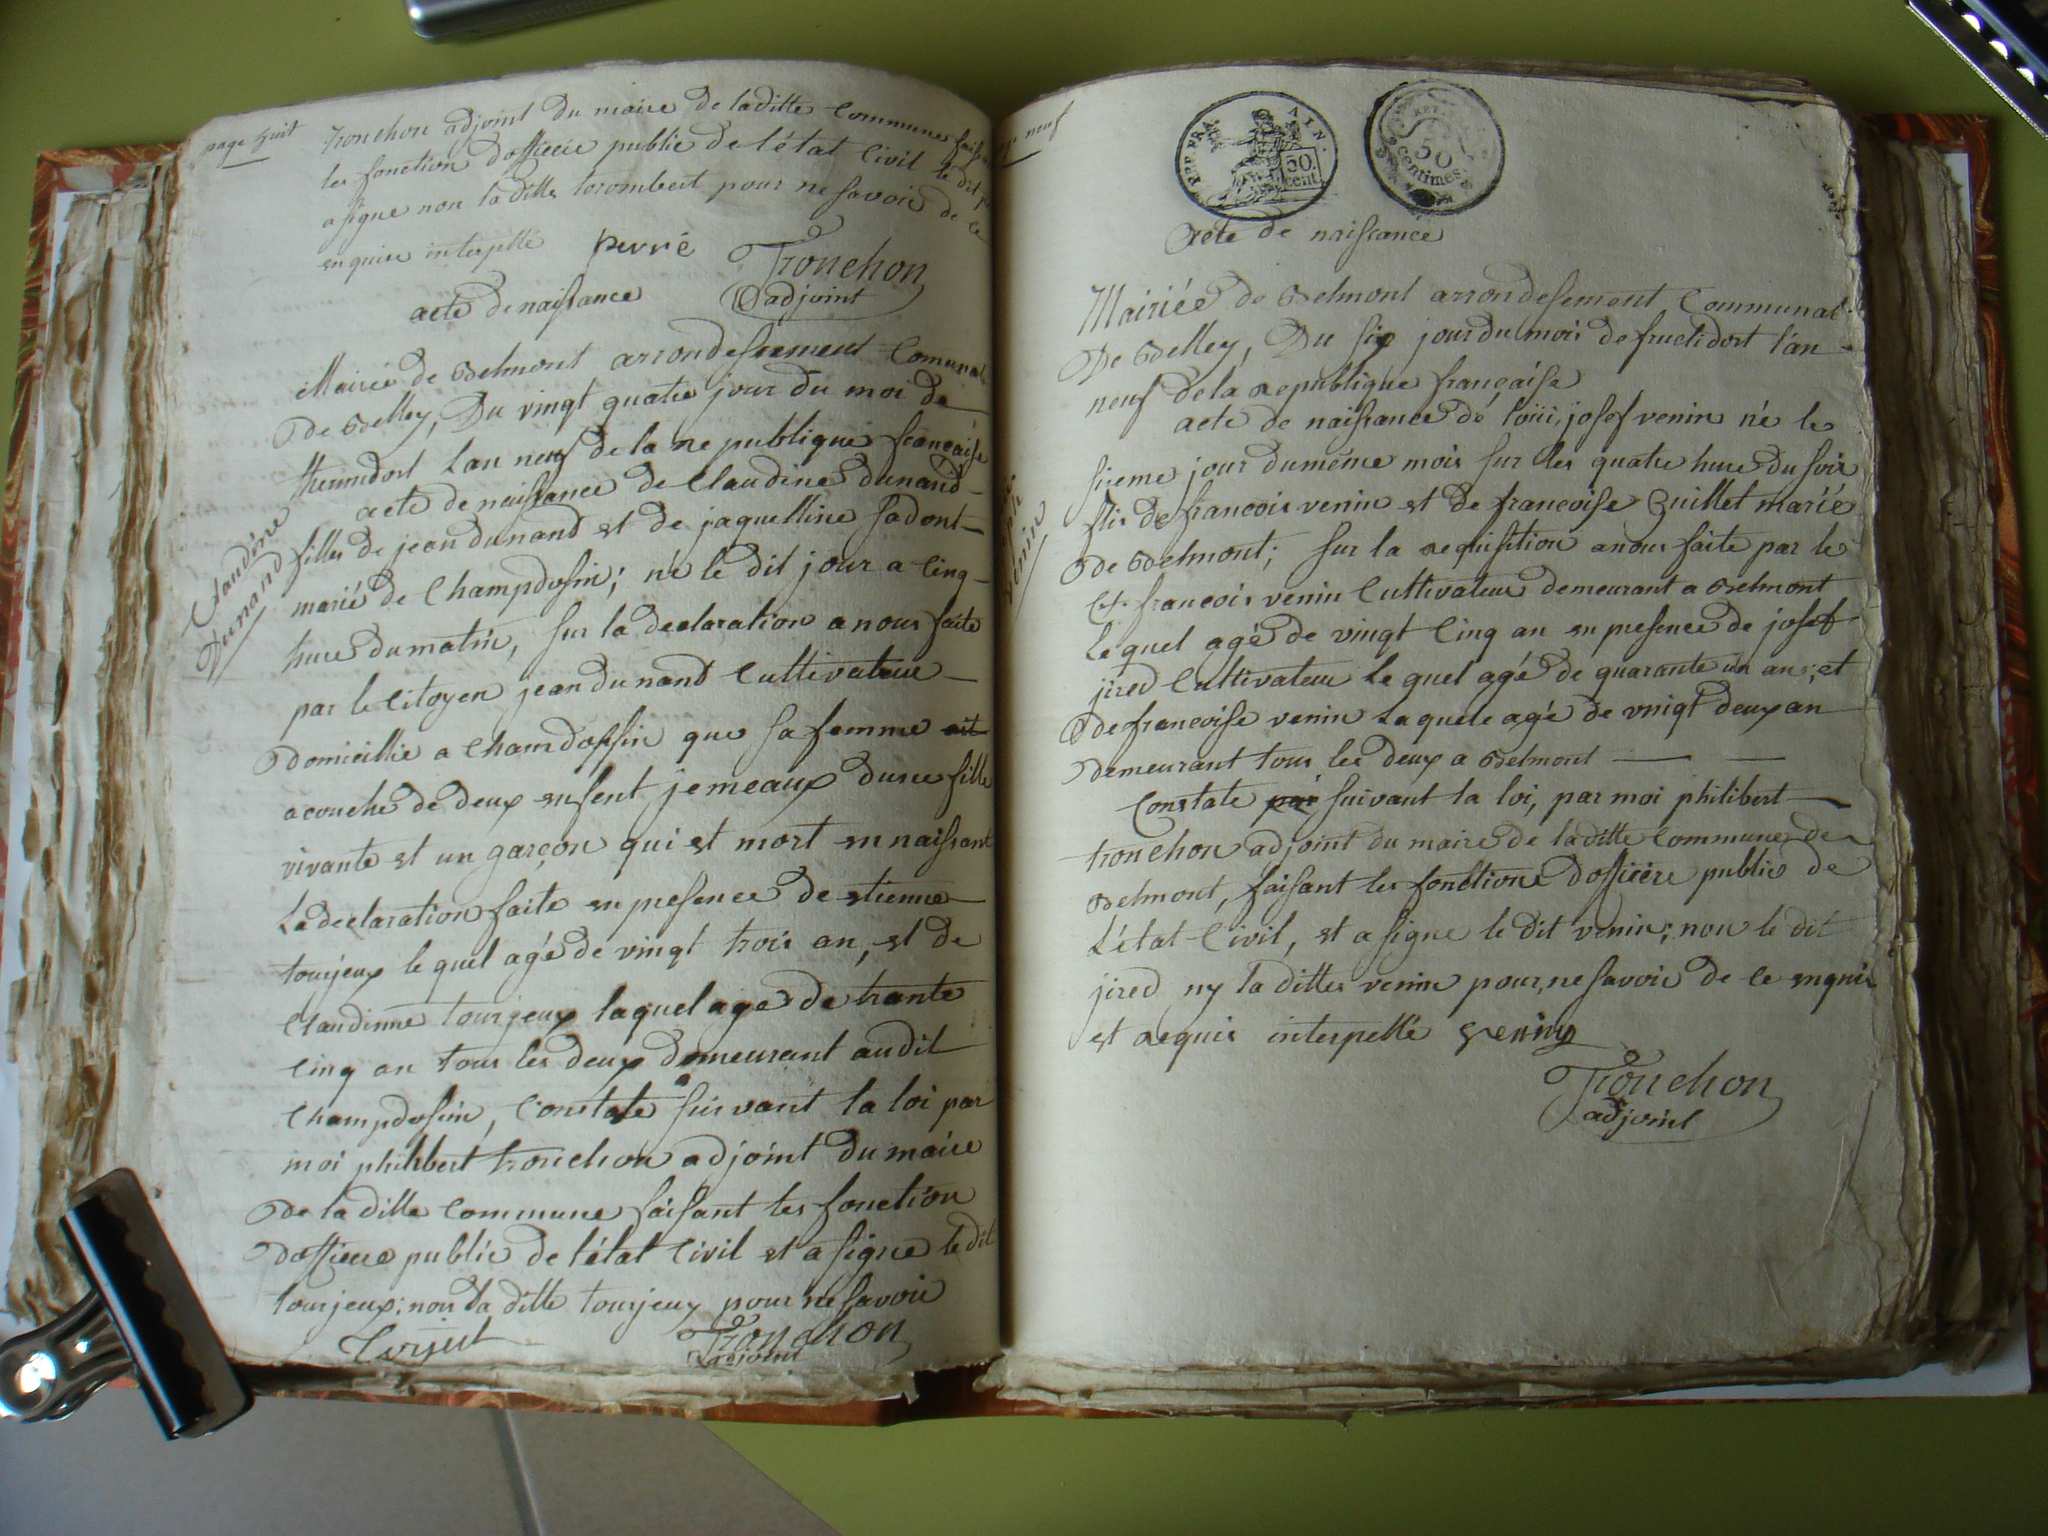 page huit
tronchon adjoint du maire de laditte Commune faisant
les fonction dofficier public de l'état Civil le dit
a signe non laditte torombert pour ne savoir de ce
enquise interpellé perré Tronchon
adjoint
acte de naissance
Mairiée de Belmont arrondessement Comunal
De Belley, Du vingt quatre jour du moi de
thermidort Lan neuf de la republique françaisse
acte de naissance de Claudine dunand
Claudine
Dunand
filles de jean dunand et de jaquelline Jadont
marié de Champdosin; né le dit jour a cinq
hure du matin, sur la declaration a nous faite
par le Citoyen jean dunand Cultivateur
Domicillié a Chamdossin que sa femme ait
acouche de deux enfent jemeaux dune fille
vivante et un garçon qui et mort en naissant
La declaration faite en presence de etienne
tourjeux le quel agé de vingt trois an, et de
Claudinne tourjeux laquel age de trante
Cinq an tous les deux demeurant audit
Champdosin, Constate suivant la loi par
moi philibert tronchon adjoint du maire
De la ditte Commune faisant les fonction
dofficier public de l'état Civil et a signe le dit
tourjeux; non la ditte tourjeux pour ne savoir
Tronchon
adjoint
neuf
REP. FRA. AIN.
50 cent.
50
centimes
Acte de naissance
Mairiée de Belmont arrondesement Communal
De Belley, Du six jour du mois de fructidort l'an
neuf de la republique françáisse
acte de naissance dé loiii, josef venin né le
sixeme jour dumême mois sur les quatre hure du soir
venin
flis de francois venin et de francoise Quillet marié
De Belmont; sur la requisition anous faite par le
Ct. francois venin Cultivateur demeurant a Belmont
Le quel agé de vingt Cinq an en presence de josef
jired Cultivateur Le quel agé de quarante un an; et
De francoise venin La quele agé de vingt deux an
demeurant tous les deux a Belmont
Constate par suivant la loi, par moi philibert
tronchon adjoint du maire de laditte Commune de
Belmont, faisant les fonctions dofficière public de
L'état Civil, et a signe le dit venin; non le dit
jired ny la dittes venin pour, ne savoir de ce enquis
et requis interpellé venin
Tronchon
adjoint